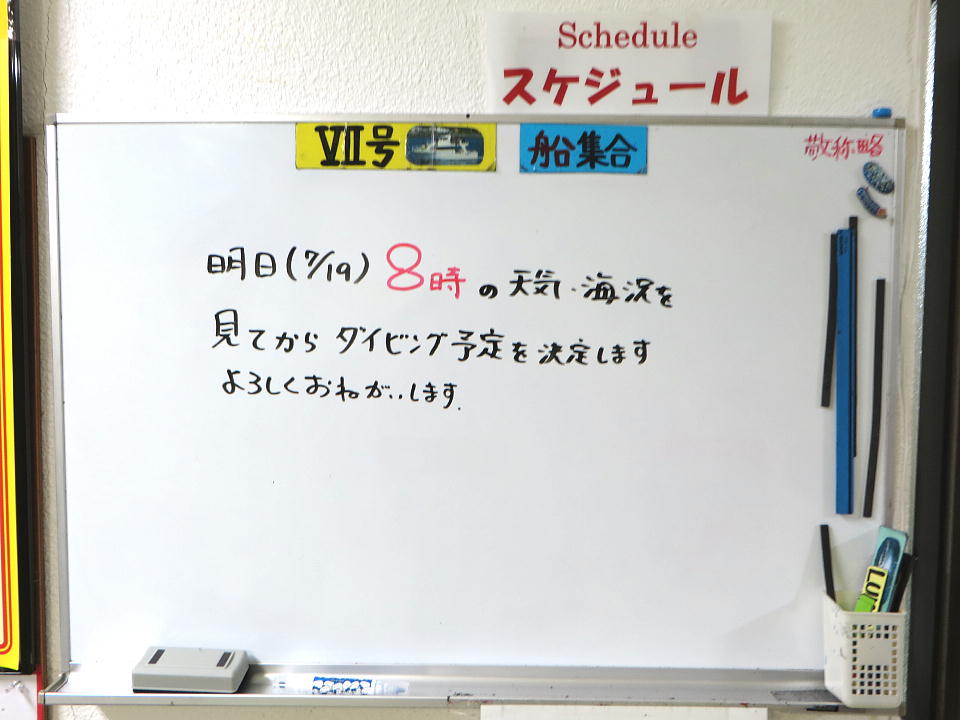 Schedule
スケジュール
Ⅶ号 船集合
敬称略
明日(7/19) 8時の天気・海況を
見てから ダイビング予定を決定します
よろしくおねがいします.
LU